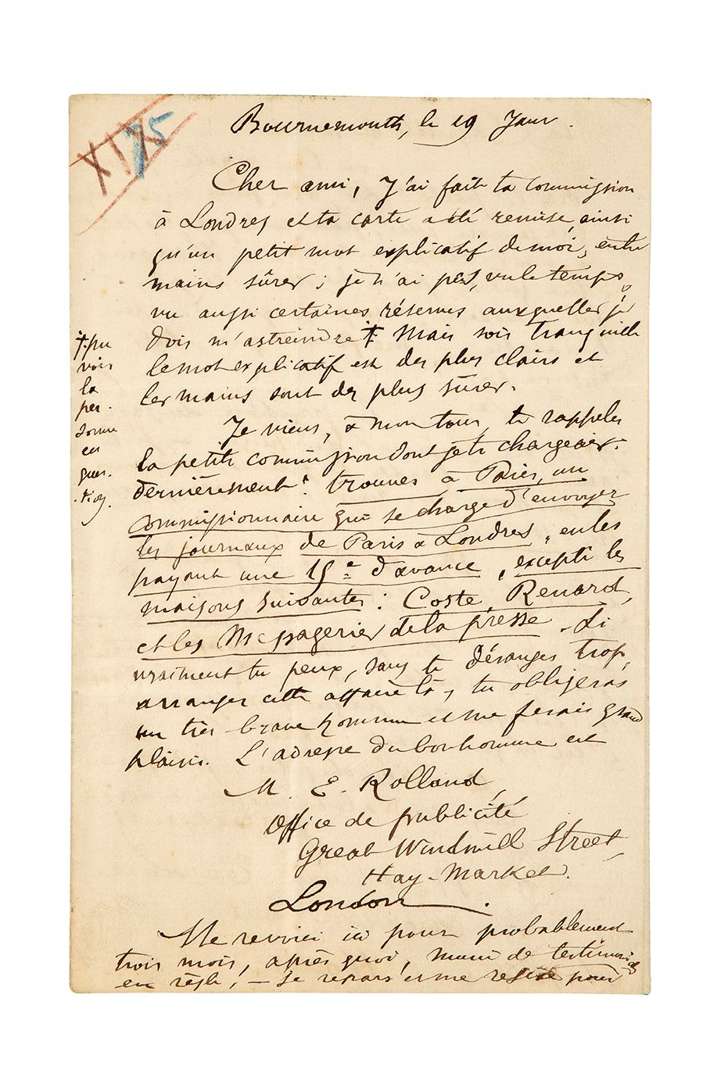 XIX 75
Bournemouth, le 19 Janv.
Cher ami, J'ai fait ta commission
à Londres et ta carte a été remise, ainsi
qu'un petit mot explicatif de moi, entre
mains sûres ; je n'ai pas, vu le temps,
vu aussi certaines réserves auxquelles je
dois m'astreindre ‡. Mais sois tranquille
le mot explicatif est des plus clairs et
les mains sont des plus sûres.
‡ pu
voir
la
per-
sonne
en
ques-
tion.
Je viens, à mon tour, te rappeler
la petite commission dont je te chargeais
dernièrement : trouver à Paris, un
commissionnaire qui se charge d'envoyer
les journaux de Paris à Londres, en les
payant une 15e d'avance, excepté les
maisons suivantes : Coste, Renard,
et les Messageries de la presse. Si
vraiment tu peux, sans te déranger trop,
arranger cette affaire là, tu obligeras
un très brave homme et me feras grand
plaisir. L'adresse du bonhomme est
M. E. Rolland,
Office de publicité
Great Windmill Street,
Hay-Market.
London.
Me revoici ici pour probablement
trois mois, après quoi, muni de testimonials
en règle, — je repars et me pour